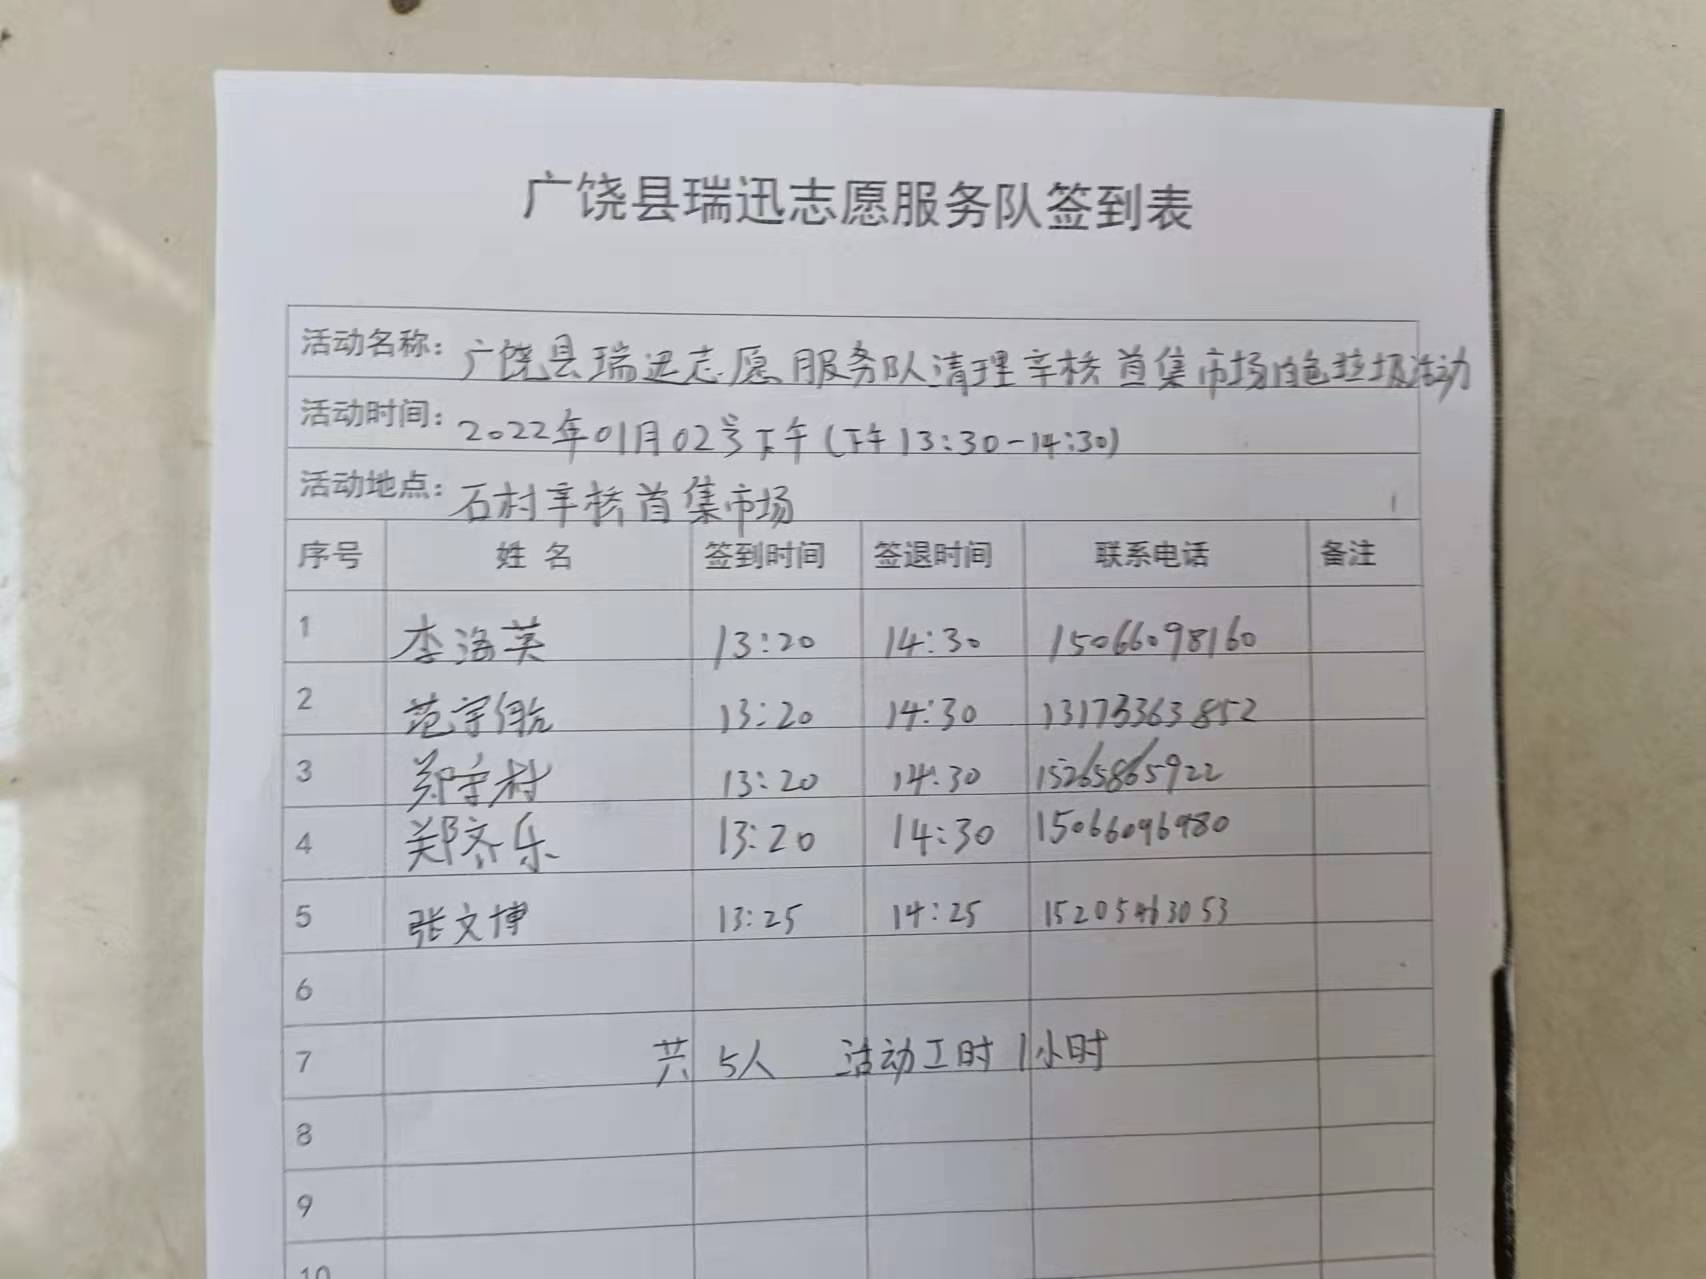 广饶县瑞迅志愿服务队签到表
活动名称：广饶县瑞迅志愿服务队清理辛桥首集市场白色垃圾活动
活动时间：2022年01月02号下午(下午13:30-14:30)
活动地点：石村辛桥首集市场
序号 姓 名 签到时间 签退时间 联系电话 备注
1 李海英 13:20 14:30 15066098160
2 范宇航 13:20 14:30 13173363852
3 郑宇村 13:20 14:30 15265865922
4 郑齐乐 13:20 14:30 15066096980
5 张文博 13:25 14:25 15205463053
6
7 共 5人 活动工时 1小时
8
9
10